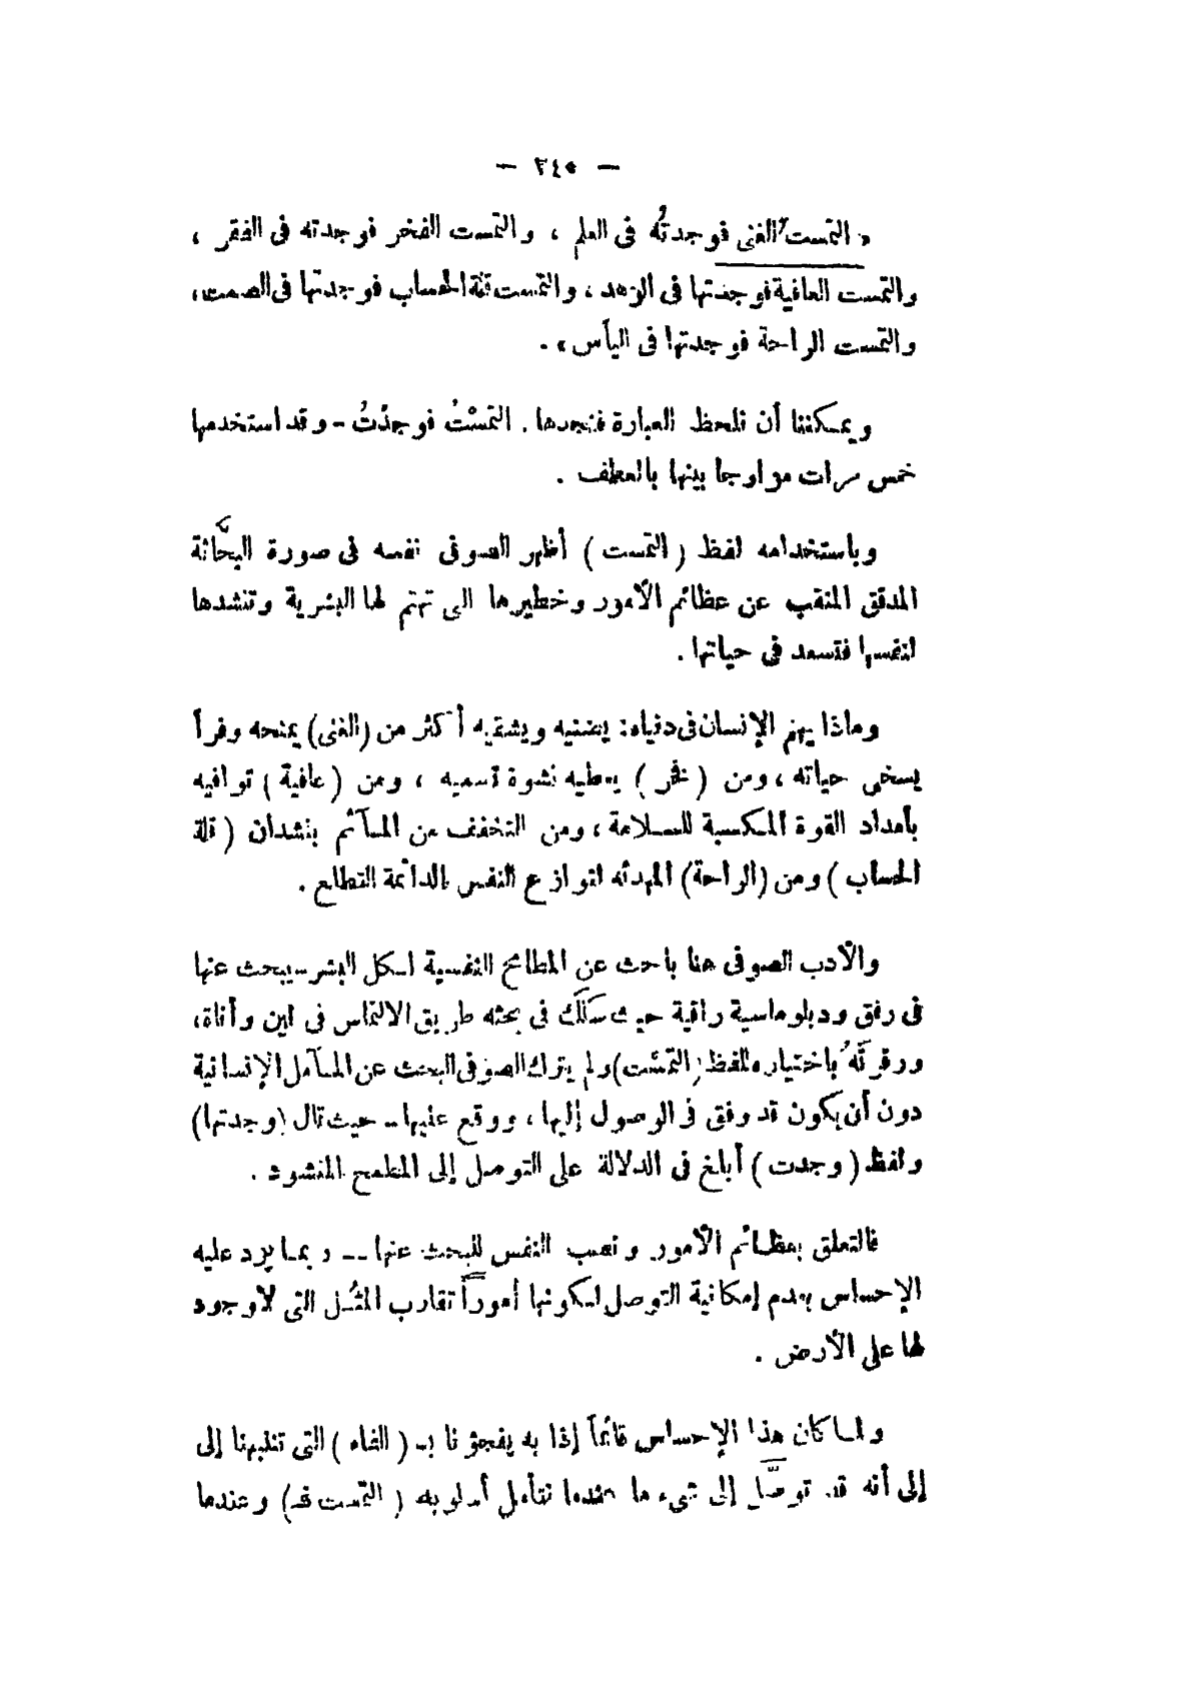 — ٢٤٥ —
« التمستُ الغنى فوجدتُه فى العلم ، والتمست الفخر فوجدته فى الفقر ،
والتمست العافية فوجدتها فى الزهد ، والتمست قلة الحساب فوجدتها فى الصمت ،
والتمست الراحة فوجدتها فى اليأس » .
ويمكننا أن نلحظ العبارة فنجدها . التمسْتُ فوجدْتُ - وقد استخدمها
خمس مرات مزاوجا بينها بالعطف .
وباستخدامه لفظ ( التمست ) أظهر الصوفى نفسه فى صورة البحَّاثة
المدقق المنقب عن عظائم الأمور وخطيرها التى تهتم لها البشرية وتنشدها
لنفسها فتسعد فى حياتها .
وماذا يهم الإنسان فى دنياه : يضنيه ويشقيه أكثر من (الغنى) يمنحه وفرأ
يسخى حياته ، ومن ( فخر ) يعطيه نشوة تسميه ، ومن ( عافية ) توافيه
بأمداد القوة المكسبة للسلامة ، ومن التخفف من المآثم بنشدان ( قلة
الحساب ) ومن (الراحة) المهدئه لنوازع النفس الدائمة التطلع .
والأدب الصوفى هنا باحث عن المطامح النفسية لكل البشر - يبحث عنها
فى رفق ودبلوماسية راقية حيث سَلَكَ فى بحثه طريق الالتماس فى لين وأناة،
ورقة باختياره للفظ (التمست) ولم يترك الصوفى البحث عن المآمل الإنسانية
دون أن يكون قد وفق فى الوصول إليها ، ووقع عليها - حيث قال (وجدتها)
ولفظ ( وجدت ) أبلغ فى الدلالة على التوصل إلى المطمح المنشود .
فالتعلق بعظائم الأمور وتعب النفس للبحث عنها -- ربما يرد عليه
الإحساس بعدم إمكانية التوصل لكونها أموراً تقارب المثُل التى لا وجود
لها على الأرض .
ولما كان هذا الإحساس قائماً إذا به يفجؤنا بـ ( الفاء ) التى تنبهنا إلى
إلى أنه قد توصَّل إلى شىء ما عندما نتأمل أسلوبه ( التمست فـ ) وعندما